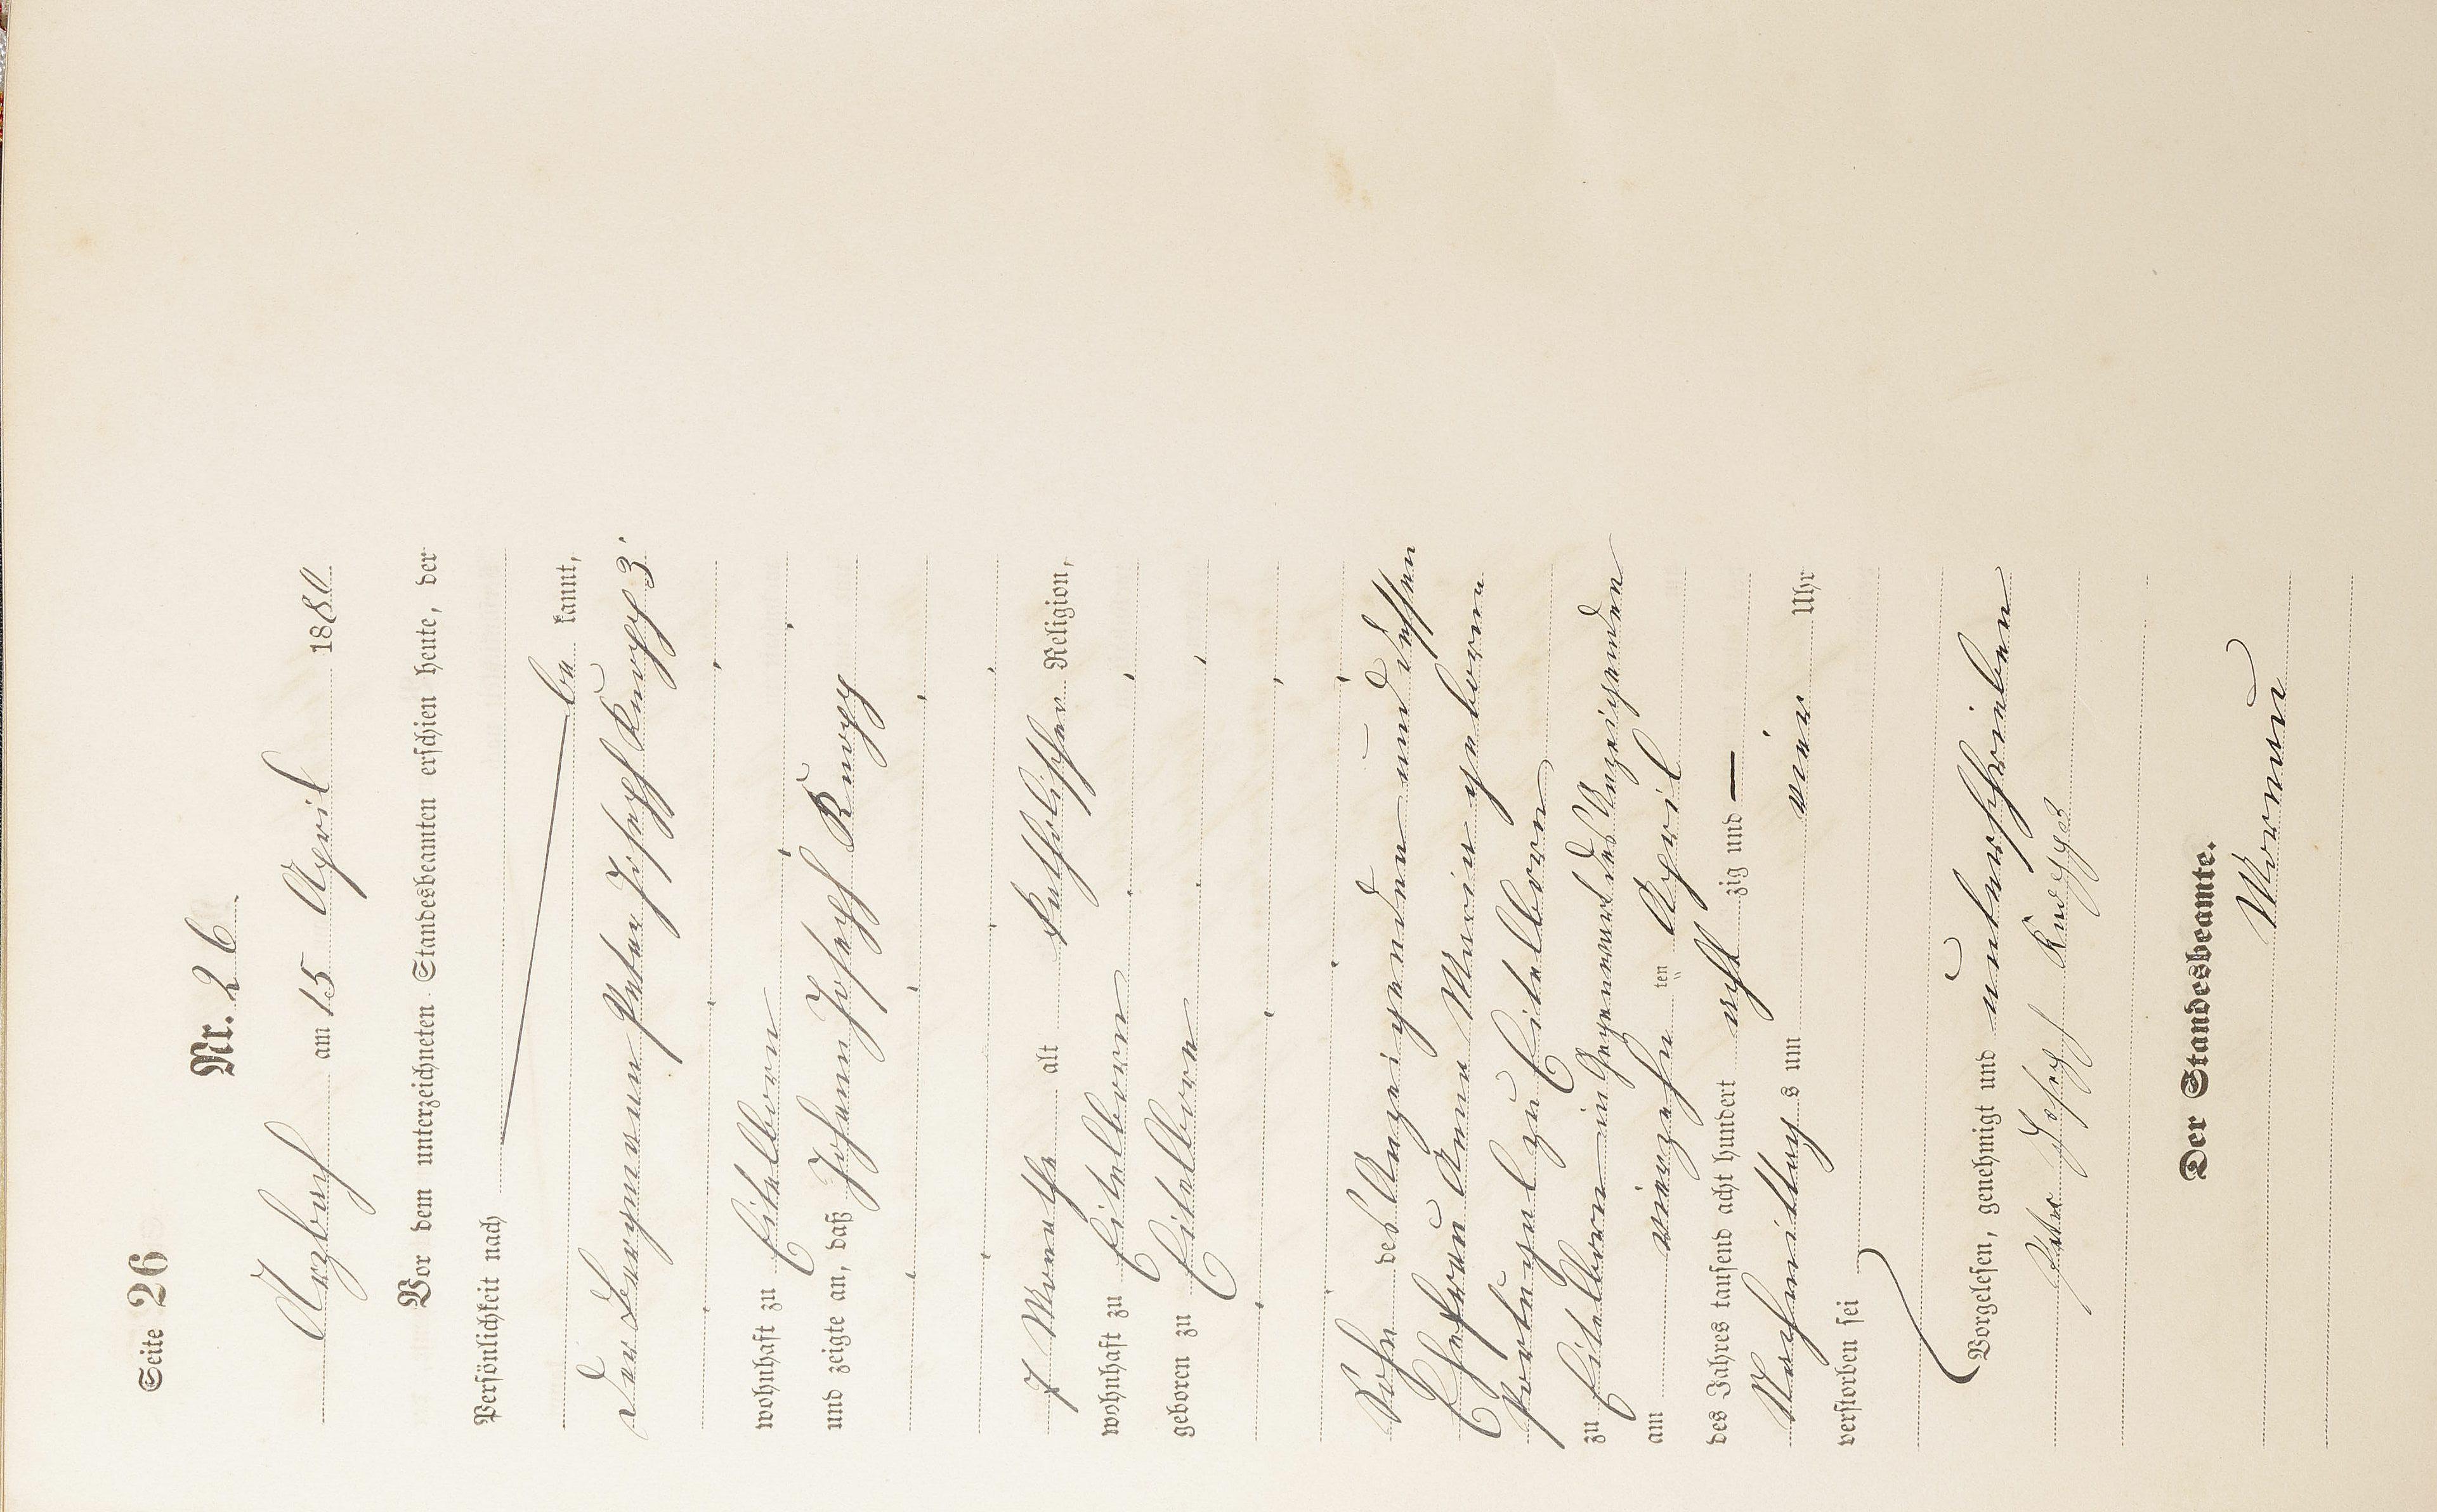 Seite 26
Nr. 26
Arzbach am 15 April 1880
Vor dem unterzeichneten Standesbeamten erschien heute, der
Persönlichkeit nach
be kannt,
der Bergmann Peter Joseph Knopp 3.
wohnhaft zu Eitelborn
und zeigte an, daß Johann Joseph Knopp
7 Monate alt katholischer Religion,
wohnhaft zu Eitelborn
geboren zu Eitelborn
Sohn des Anzeigenden und dessen
Ehefrau Anna Maria geborene
zu Eitelborn
zu Eitelborn in Gegenwart des Anzeigenden
am vierzehn ten April
des Jahres tausend acht hundert acht zig und —
Nachmittag s um vier Uhr
verstorben sei
Vorgelesen, genehmigt und unterschrieben
Peter Josepf Knopp
Der Standesbeamte.